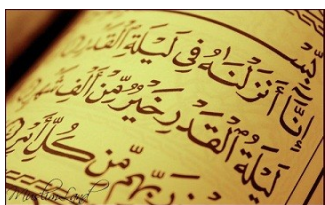 إِنَّا أَنزَلْنَاهُ فِي لَيْلَةِ الْقَدْرِ
لَيْلَةُ الْقَدْرِ خَيْرٌ مِّنْ أَلْفِ شَهْرٍ
رَبِّهِم مِّن كُلِّ أَمْرٍ
MuslimLand